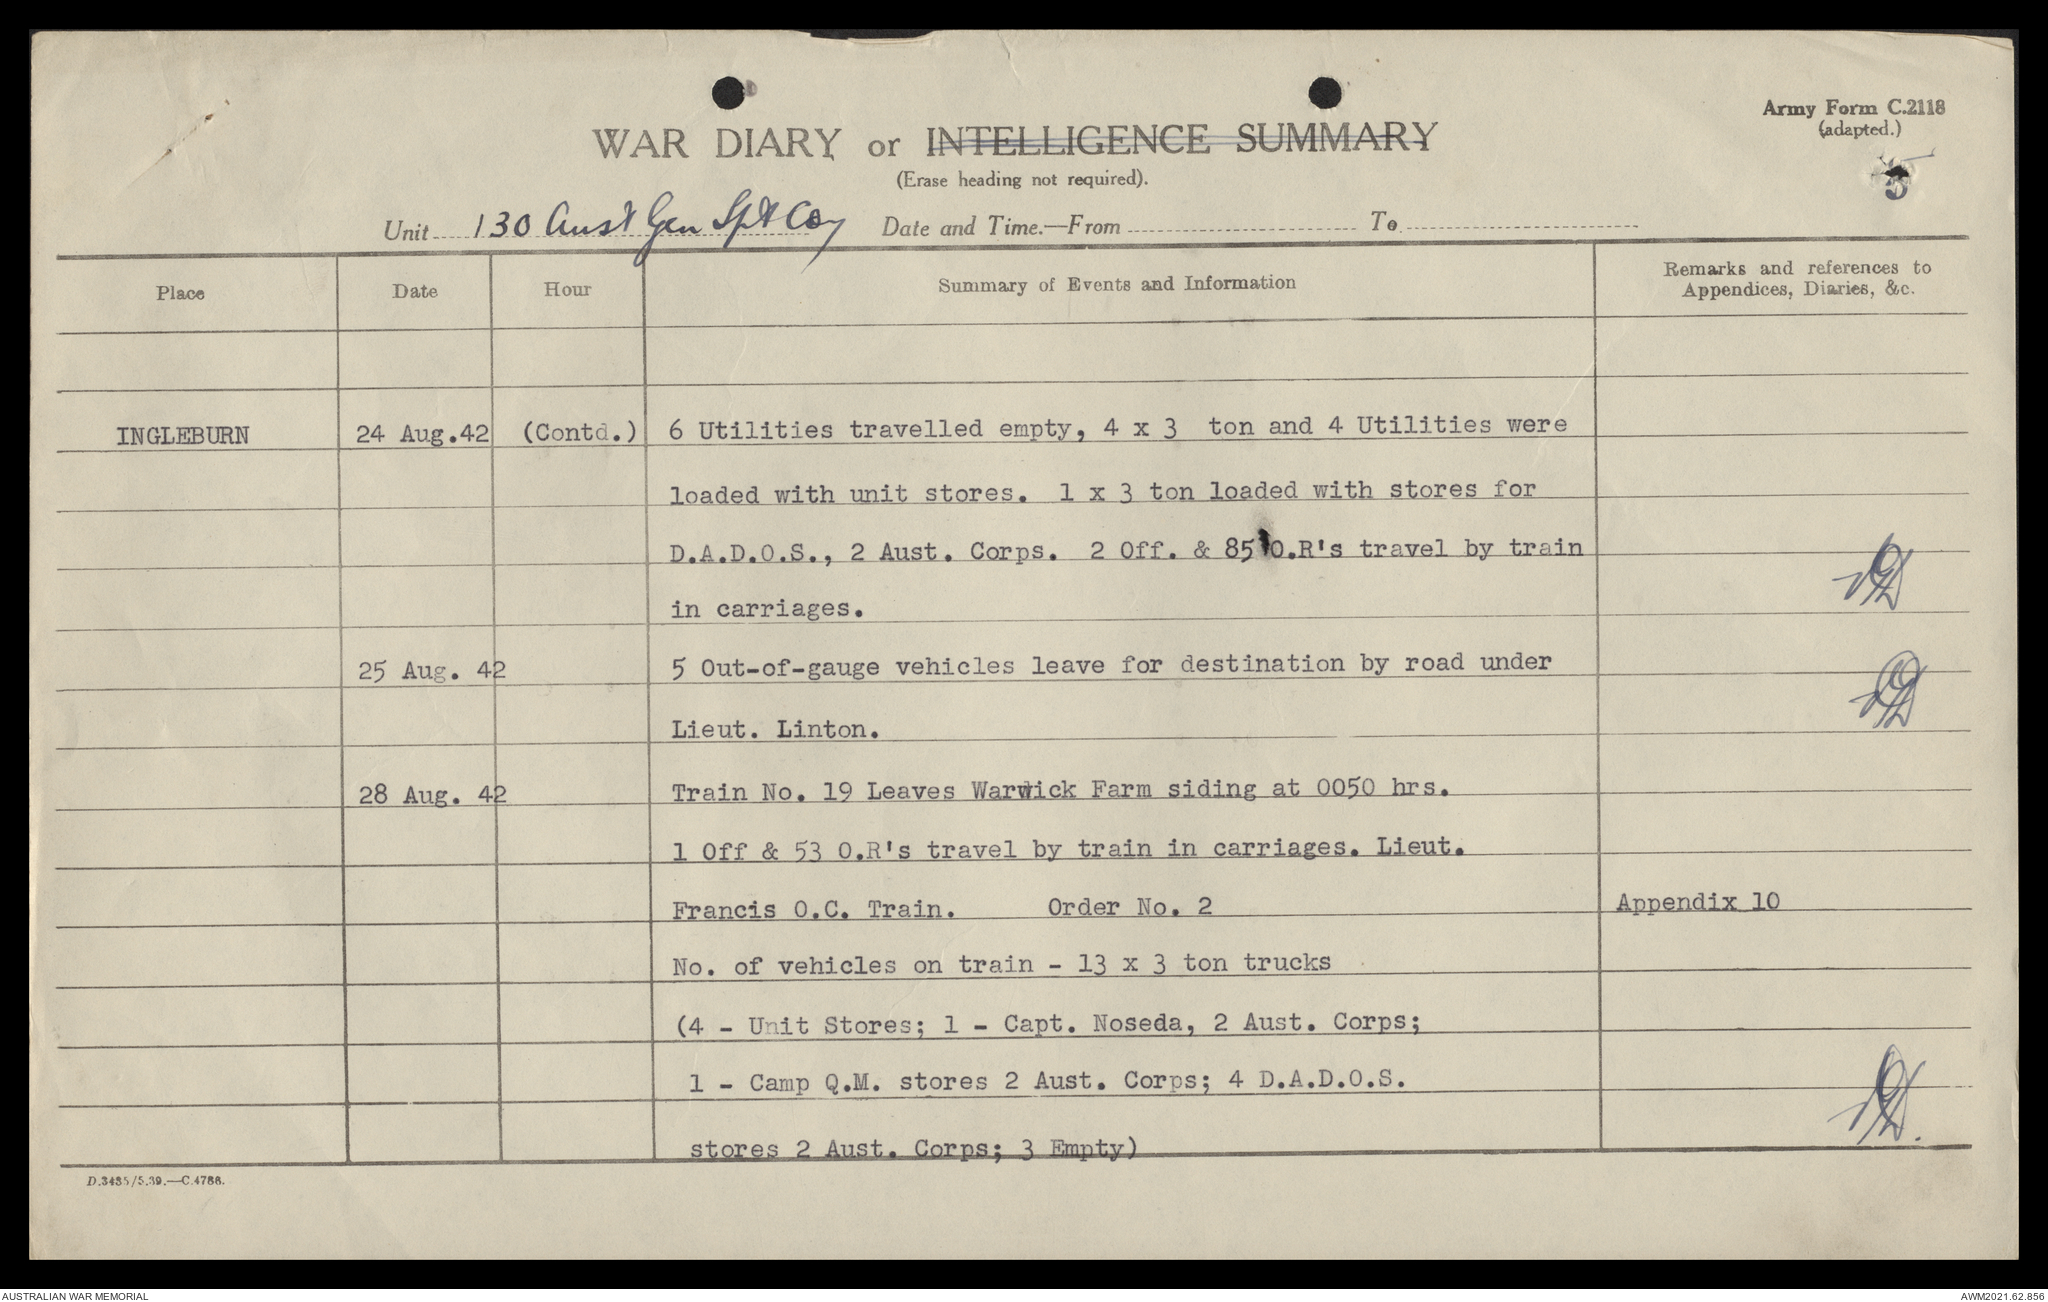 Army Form C.2118
(adapted.)
5
WAR DIARY or INTELLIGENCE SUMMARY
(Erase heading not required).
Unit 130 Aust Gen Spt Coy Date and Time.—From To
Place Date Hour Summary of Events and Information Remarks and references to
Appendices, Diaries, &c.
INGLEBURN 24 Aug.42 (Contd.) 6 Utilities travelled empty, 4 x 3 ton and 4 Utilities were
loaded with unit stores. 1 x 3 ton loaded with stores for
D.A.D.O.S., 2 Aust. Corps. 2 Off. & 85 O.R's travel by train
in carriages.
25 Aug. 42 5 Out-of-gauge vehicles leave for destination by road under
Lieut. Linton.
28 Aug. 42 Train No. 19 Leaves Warwick Farm siding at 0050 hrs.
1 Off & 53 O.R's travel by train in carriages. Lieut.
Francis O.C. Train. Order No. 2 Appendix 10
No. of vehicles on train - 13 x 3 ton trucks
(4 - Unit Stores; 1 - Capt. Noseda, 2 Aust. Corps;
1 - Camp Q.M. stores 2 Aust. Corps; 4 D.A.D.O.S.
stores 2 Aust. Corps; 3 Empty)
D.3435/5.39.—C.4786.
AUSTRALIAN WAR MEMORIAL AWM2021.62.856